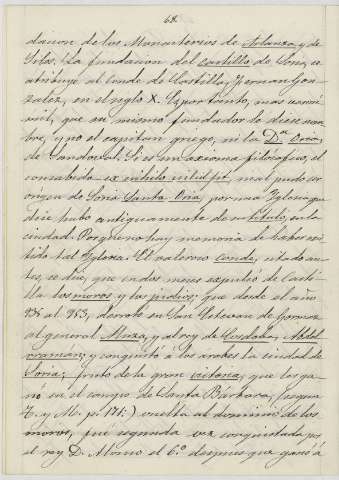 68.
dacion de los Monasterios de Arlanza, y de
Silos. La fundacion del castillo de Soria, se
atribuye al Conde de Castilla, Fernan Gon-
zalez, en el siglo X. Es por tanto, mas verosi-
mil, que su mismo fundador le diese nom-
bre, y no el capitan griego, ni la Dª Oria
de Sandoval. Si es un axioma filosofico, el
consabido ex nihilo nihil fit, mal pudo ser
origen de Soria Santa Oria, por una Iglesia que
dice hubo antiguamente de su titulo, en la
ciudad. Porque no hay memoria de haber exis-
tido tal Iglesia. El valeroso Conde, citado an-
tes, se dice, que en dos meses expulsó de Casti-
lla los moros y los judios; que desde el año
938 al 953, derrotó en San Estevan de Gormaz
al general Muza, y al rey de Cordoba, Abdel-
rraman; y conquistó a los arabes la ciudad de
Soria, fruto de la gran victoria, que los ga-
nó en el campo de Santa Bárbara, (segun
Z. y M. p. 171.) vuelta al dominio de los
moros, fue segunda vez conquistada por
el rey D. Alonso el 6.º despues que ganó á